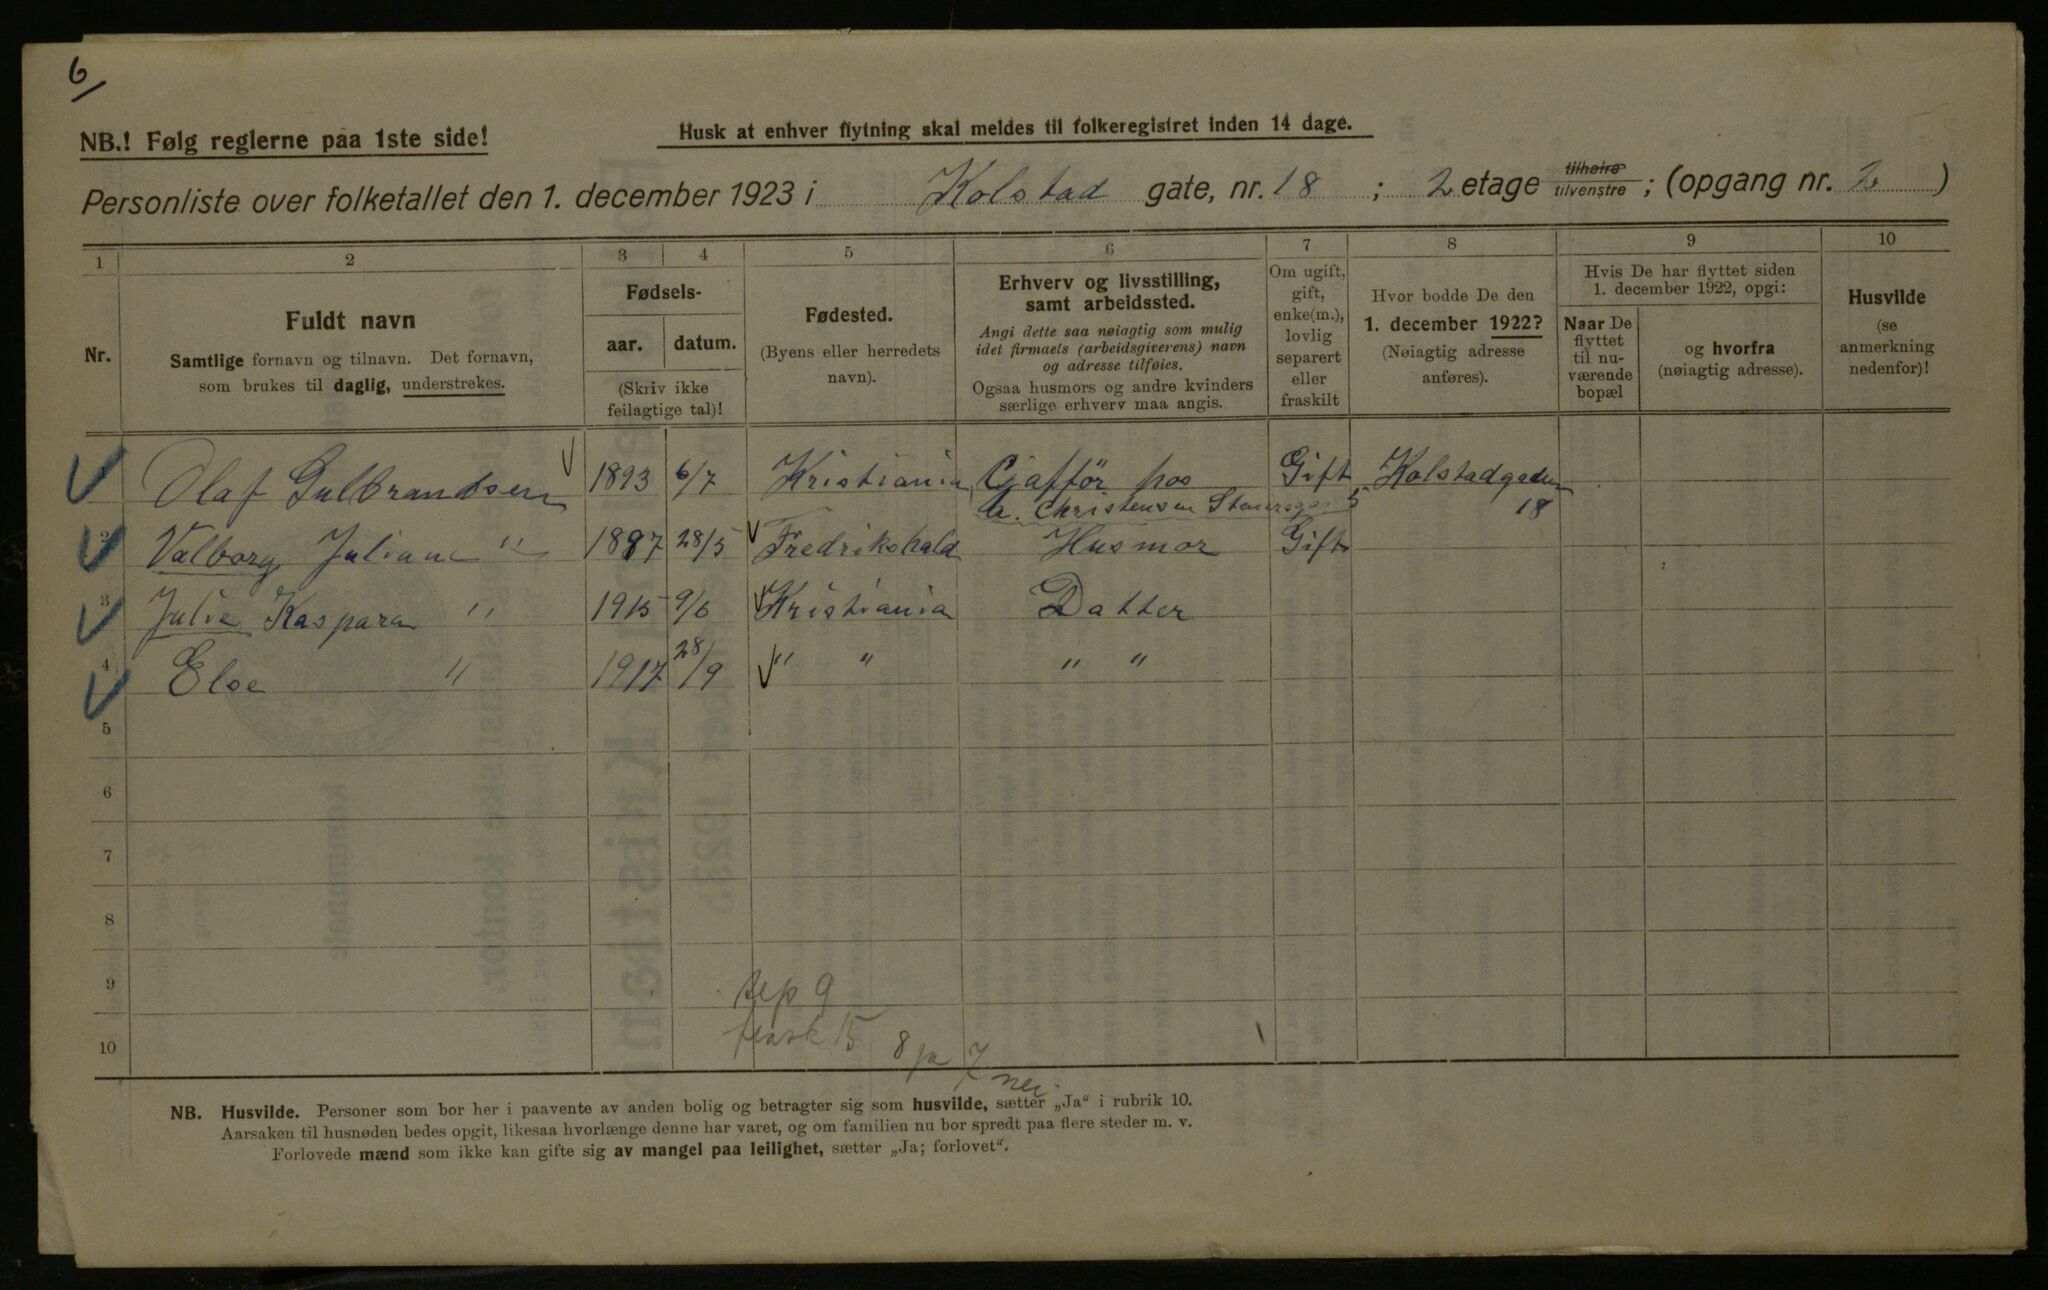 6
NB.! Følg reglerne paa 1ste side!
Husk at enhver flytning skal meldes til folkeregistret inden 14 dage.
Personliste over folketallet den 1. december 1923 i Kolstad gate, nr. 18 ; 2 etage tilhøire tilvenstre ; (opgang nr. 2 )
1 2 3 4 5 6 7 8 9 10
Nr.
Fuldt navn
Samtlige fornavn og tilnavn. Det fornavn,
som brukes til daglig, understrekes.
Fødsels-
aar. datum.
(Skriv ikke
feilagtige tal)!
Fødested.
(Byens eller herredets
navn).
Erhverv og livsstilling,
samt arbeidssted.
Angi dette saa nøiagtig som mulig
idet firmaets (arbeidsgiverens) navn
og adresse tilføies.
Ogsaa husmors og andre kvinders
særlige erhverv maa angis.
Om ugift,
gift,
enke(m.),
lovlig
separert
eller
fraskilt
Hvor bodde De den
1. december 1922?
(Nøiagtig adresse
anføres).
Hvis De har flyttet siden
1. december 1922, opgi:
Naar De
flyttet
til nu-
værende
bopæl
og hvorfra
(nøiagtig adresse).
Husvilde
(se
anmerkning
nedenfor)!
Olaf Gulbrandsen 1893 6/7 Kristiania Gjaffør hos Gift Kolstadgaden
A. Christensen 5 18
2 Valborg Juliane " 1897 28/5 Fredrikshald Husmor Gift
3 Julie Kaspara " 1915 9/6 Kristiania Datter
4 Else " 1917 28/9 " " " "
5
6
7
8
9
10
9
15
8 ja 7 nei
NB. Husvilde. Personer som bor her i paavente av anden bolig og betragter sig som husvilde, sætter „Ja“ i rubrik 10.
Aarsaken til husnøden bedes opgit, likesaa hvorlænge denne har varet, og om familien nu bor spredt paa flere steder m. v.
Forlovede mænd som ikke kan gifte sig av mangel paa leilighet, sætter „Ja; forlovet“.